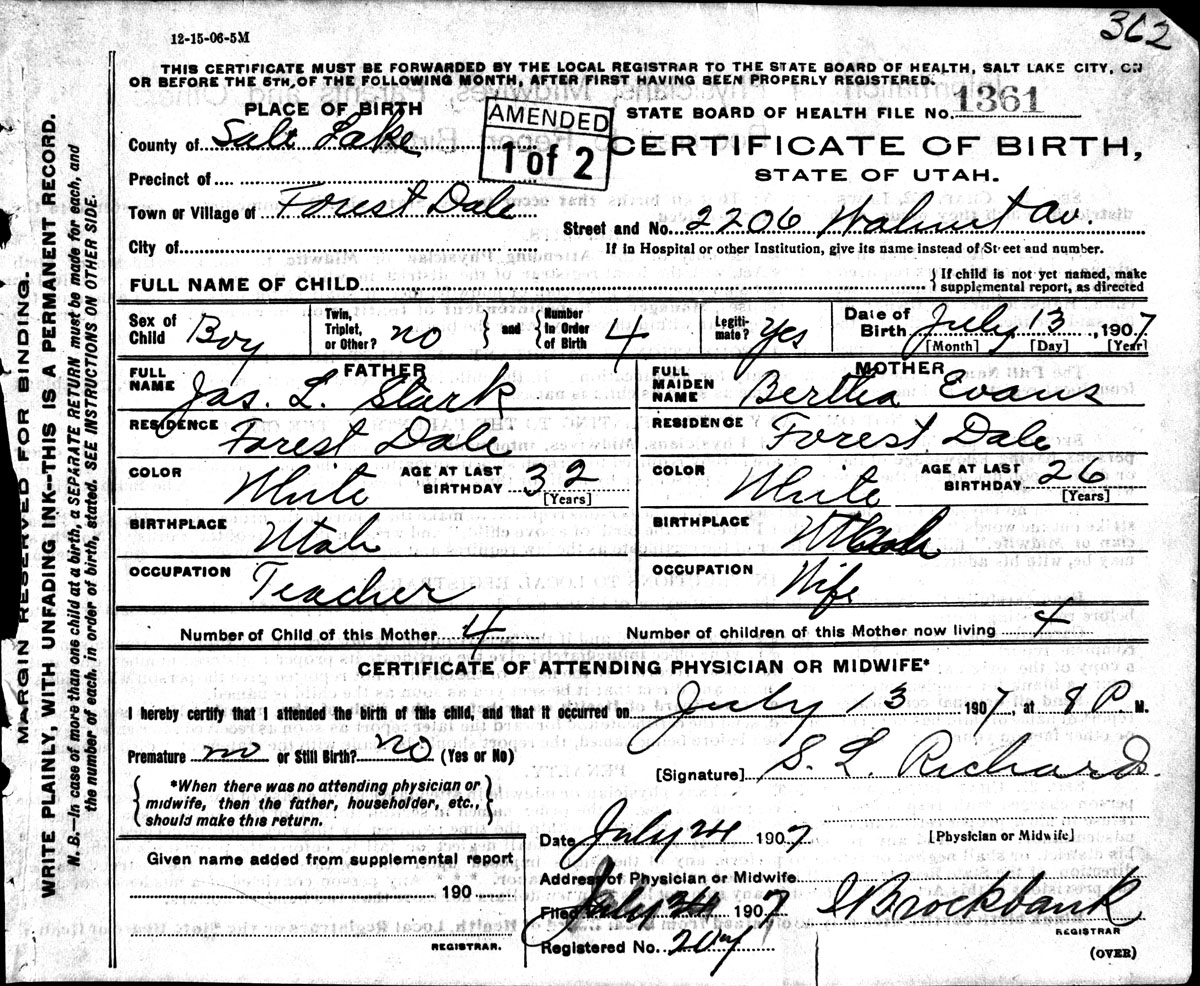 12-15-06-5M
362
THIS CERTIFICATE MUST BE FORWARDED BY THE LOCAL REGISTRAR TO THE STATE BOARD OF HEALTH, SALT LAKE CITY, ON
OR BEFORE THE 5TH, OF THE FOLLOWING MONTH, AFTER FIRST HAVING BEEN PROPERLY REGISTERED.
PLACE OF BIRTH
AMENDED
1 of 2
STATE BOARD OF HEALTH FILE No. 1361
County of Salt Lake
CERTIFICATE OF BIRTH,
STATE OF UTAH.
Precinct of
Town or Village of Forest Dale
Street and No. 2206 Walnut Av.
City of
If in Hospital or other Institution, give its name instead of Street and number.
FULL NAME OF CHILD
If child is not yet named, make
supplemental report, as directed
Sex of Child Boy Twin, Triplet, or Other? no and Number in Order of Birth 4 Legitimate? Yes Date of Birth July 13, 1907
[Month] [Day] [Year]
FATHER
MOTHER
FULL NAME Jas. L. Stark
FULL MAIDEN NAME Bertha Evans
RESIDENCE Forest Dale
RESIDENCE Forest Dale
COLOR White AGE AT LAST BIRTHDAY 32 [Years]
COLOR White AGE AT LAST BIRTHDAY 26 [Years]
BIRTHPLACE Utah
BIRTHPLACE Utah
OCCUPATION Teacher
OCCUPATION Wife
Number of Child of this Mother 4 Number of children of this Mother now living 4
CERTIFICATE OF ATTENDING PHYSICIAN OR MIDWIFE*
I hereby certify that I attended the birth of this child, and that it occurred on July 13 1907, at 8 P. M.
Premature no or Still Birth? no (Yes or No)
[Signature] S. L. Richards
*When there was no attending physician or
midwife, then the father, householder, etc.,
should make this return.
Date July 24 1907
[Physician or Midwife]
Given name added from supplemental report
190
REGISTRAR.
Address of Physician or Midwife
Filed July 24 1907
Brockbank
REGISTRAR
Registered No. 207
(OVER)
MARGIN RESERVED FOR BINDING.
WRITE PLAINLY, WITH UNFADING INK--THIS IS A PERMANENT RECORD.
N. B.—In case of more than one child at a birth, a SEPARATE RETURN must be made for each, and
the number of each, in order of birth, stated. SEE INSTRUCTIONS ON OTHER SIDE.